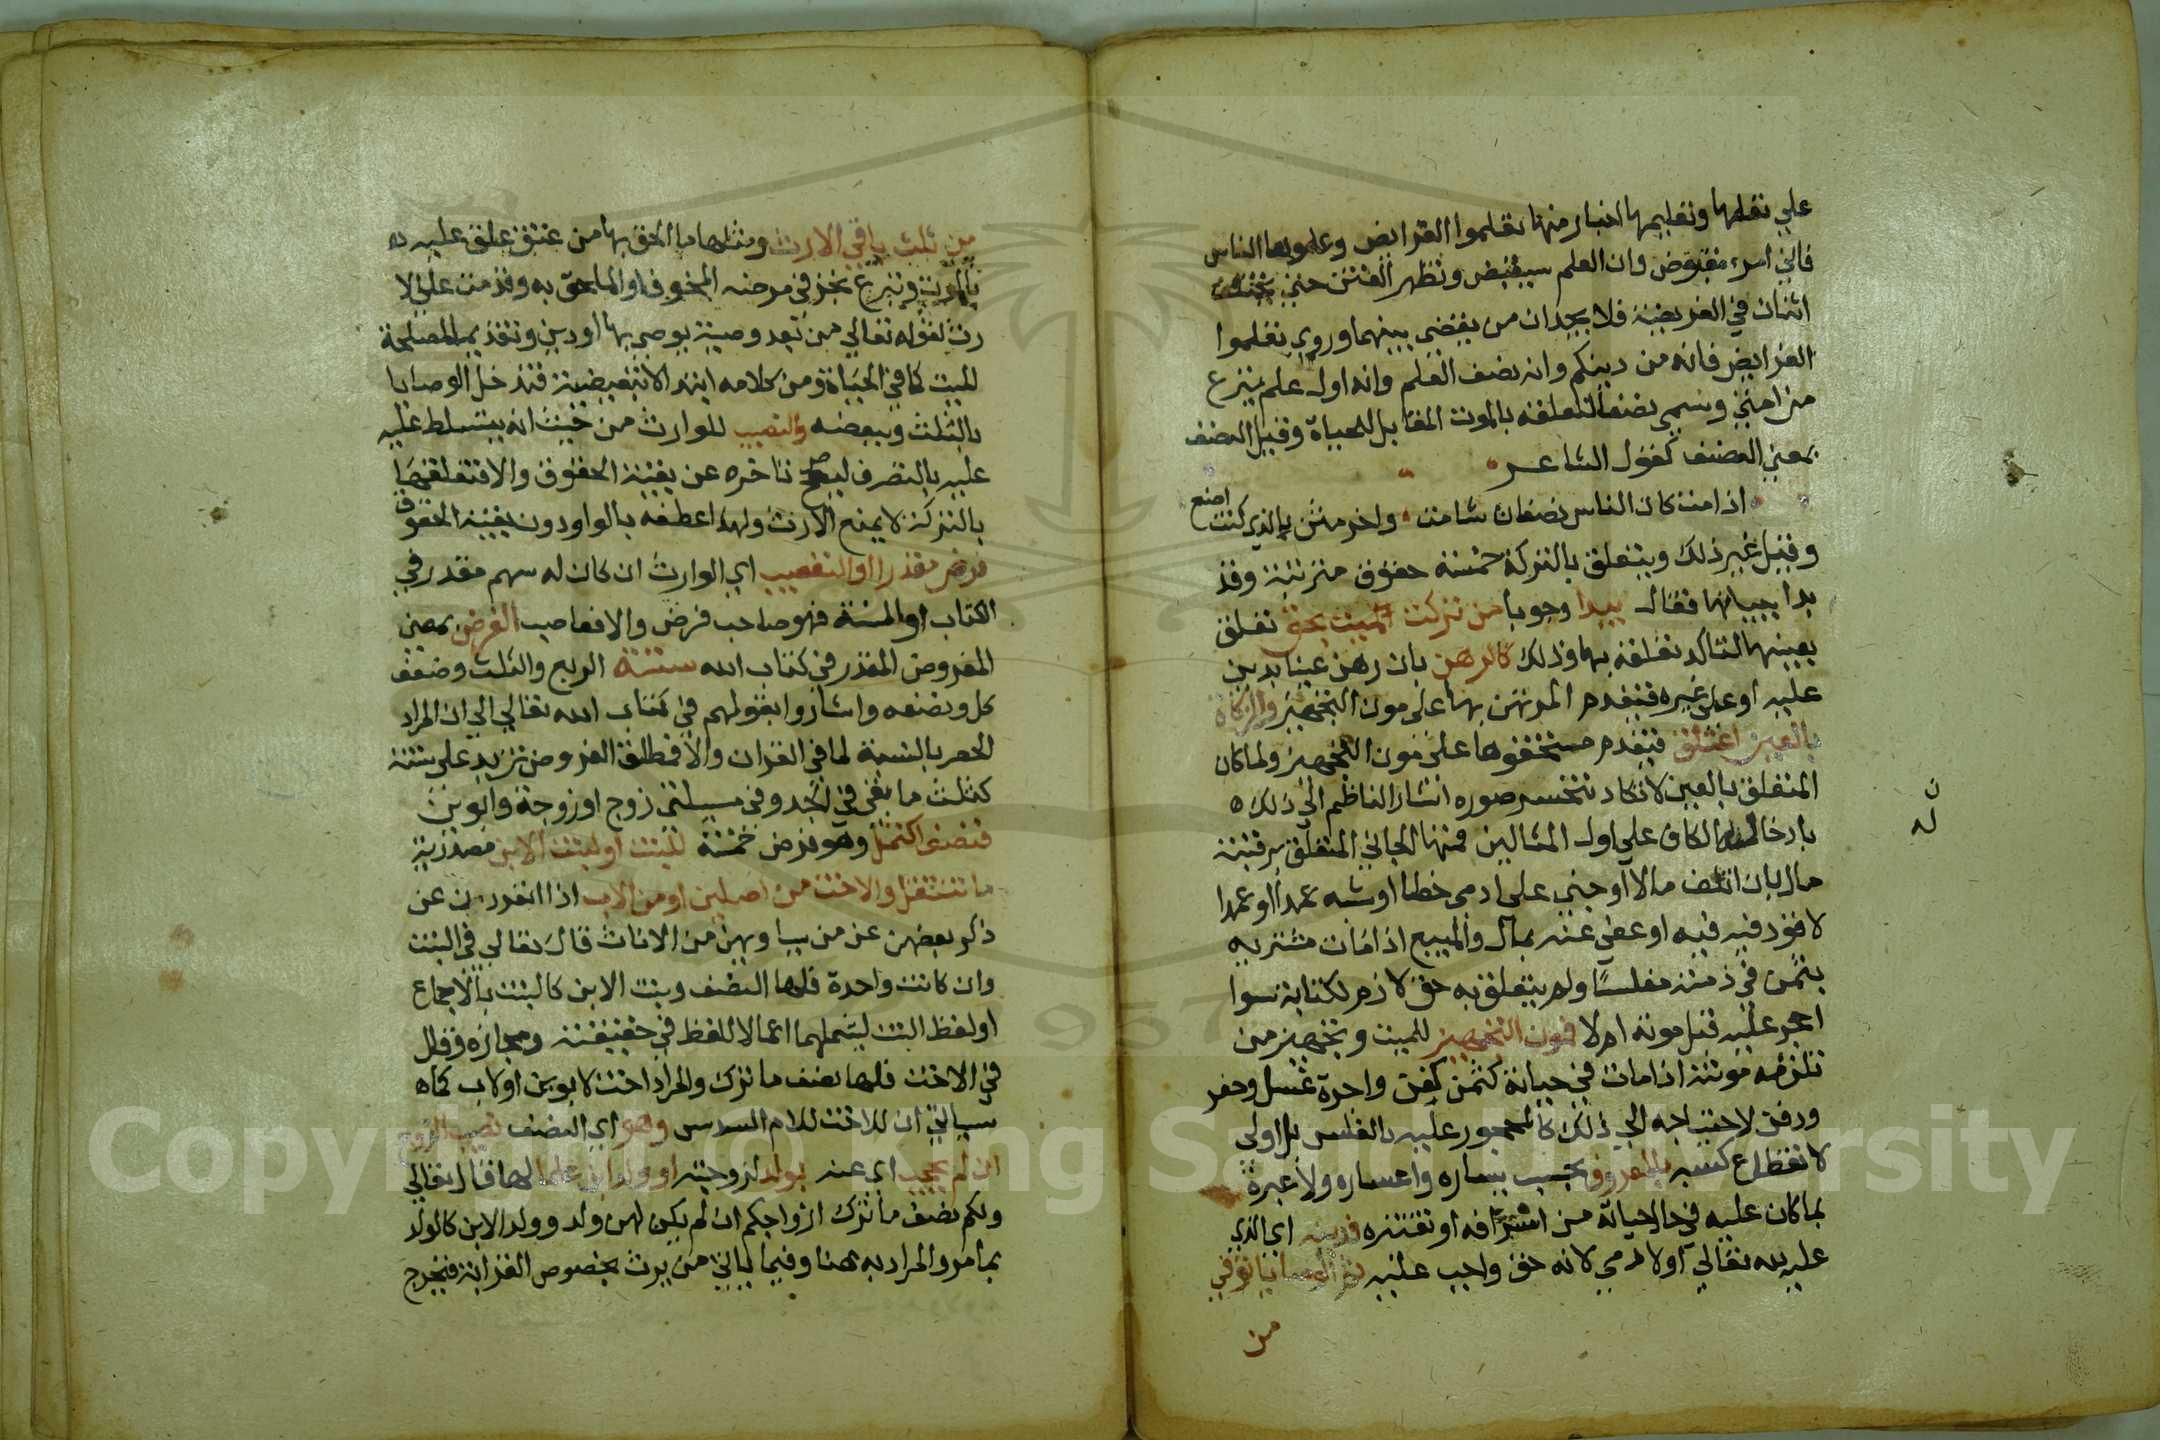 علي تعلمها وتعليمها اخبار منها تعلموا الفرايض وعلموها الناس
فاني امرء مقبوض وان العلم سيقبض وتظهر الفتن حتي يختلف
اثنان في الفريضة فلا يجدان من يقضي بينهما وروي تعلموا
الفرايض فانه من دينكم وانه نصف العلم وانه اول علم ينزع
من امتي وسمي نصفا لتعلقه بالموت المقابل للحياة وقيل النصف
بمعني الصنف كقول الشاعر
اذا مت كان الناس نصفان شامت واخر مثن بالذي كنت اصنع
وقيل غير ذلك ويتعلق بالتركة خمسة حقوق مترتبة وقد
بدا ببيانها فقال يبدا وجوبا من تركت الميت بحق تعلق
بعينها لتاكد تعلقه بها وذلك كالرهن بان رهن عينا بدين
عليه او على غيره فيقدم المرتهن بها على مون التجهيز والزكاة
بالعين اعتلق فيقدم مستحقوها على مون التجهيز ولما كان
المتعلق بالعين لا تكاد تنحسر صوره اشار الناظم الي ذلك ه
بادخال الكاف علي اول المثالين فمنها الجاني المتعلق برقبته
مال بان اتلف مالا او جني على ادمي خطا او شبه عمد او عمدا
لا قود فيه فيه او عفي عنه بمال والمبيع اذا مات مشتريه
بثمن في ذمته مفلسا ولم يتعلق به حق لازم لكتابة سوا
احجر عليه قبل موته ام لا فمون التجهيز للميت وتجهيز من
تلزمه مونته اذا مات في حياته كثمن كفن واجرة غسل وحفر
ودفن لاحتياجه الي ذلك كالمحجور عليه بالفلس بل اولى
لانقطاع كسبه بالمعروف بحسب يساره واعساره ولا عبرة
بما كان عليه في حال حياته من اسرافه او تقتيره فدينه اي الذي
عليه لله تعالي او لادمي لانه حق واجب عليه ثم الوصايا توفي
من
ن
له
من ثلث باقي الارث ومثلها ما الحق بها من عتق علق عليه ه
بالموت وتبرع نجز في مرضه المخوف او الملحق به وقدمت علي الا
رث لقوله تعالي من بعد وصية يوصي بها او دين وتقديما لمصلحة
للميت كما في الحياة ومن كلامه ابتدا لا تبعيضية فتدخل الوصايا
بالثلث وببعضه والنصيب للوارث من حيث انه يتسلط عليه
عليه بالتصرف ليصح تاخره عن بقية الحقوق والا فتعلقها
بالتركة لا يمنع الارث ولهذا عطفه بالواو دون بقية الحقوق
فرض مقدرا او التعصيب اي الوارث ان كان له سهم مقدر في
الكتاب او السنة فهو صاحب فرض والا فعاصب الفرض بمعني
المفروض المقدر في كتاب الله ستتة الربع والثلث وضعف
كل ونصفه واشاروا بقولهم في كتاب الله تعالي الي ان المراد
الحصر بالنسبة لما في القران والا فمطلق الفروض تزيد على ستة
كثلث ما بقي في الجد وفي مسيلتي زوج او زوجة وابوين
فنصف اكتمل وهو فرض خمسة للبنت او لبنت الابن
ما تستفل والاخت من اصلين او من الاب اذا انفردن عن
ذكر بعضهن عن من يساويهن من الاناث قال تعالي في البنت
وان كانت واحدة فلها النصف وبنت الابن كالبنت بالاجماع
او لفظ البنت ليشملهما اعمالا للفظ في حقيقته ومجازه وقال
في الاخت فلها نصف ما ترك والمراد اخت لابوين او لاب كماه
سياتي ان للاخت للام السدس وهو اي النصف نصيب الزوج
ان لم يحجب اي عنه بولد لزوجته او ولد ابن علما لها قال تعالي
ولكم نصف ما ترك ازواجكم ان لم يكن لهن ولد وولد الابن كالولد
بما مر والمراد به هنا وفيما ياتي من يرث بخصوص القرابة فتخرج
Copyright © King Saud University
1957